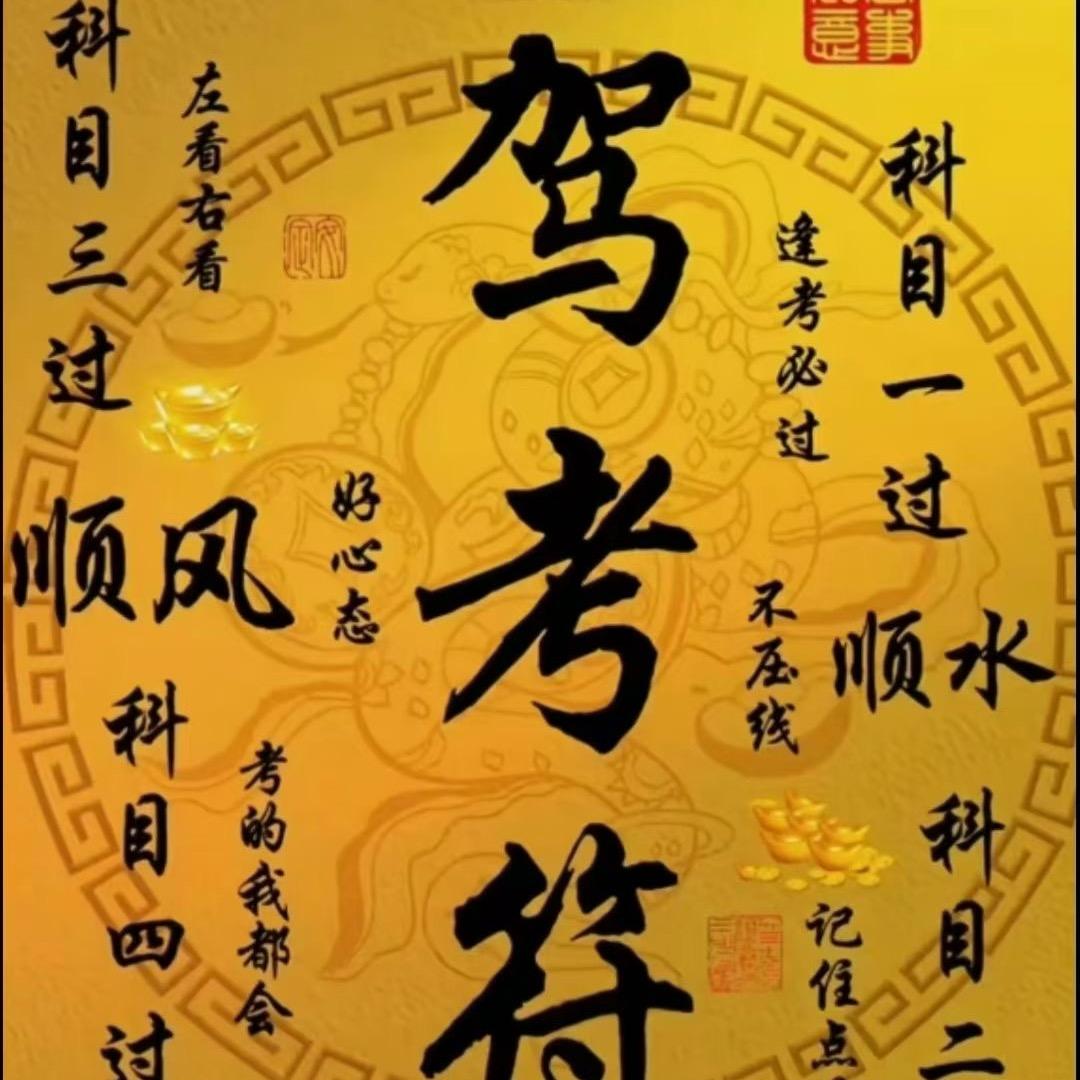 驾考符
科目一过
逢考必过
顺水
不压线
科目二
记住点
科目三过
左看右看
顺风
好心态
科目四过
考的我都会